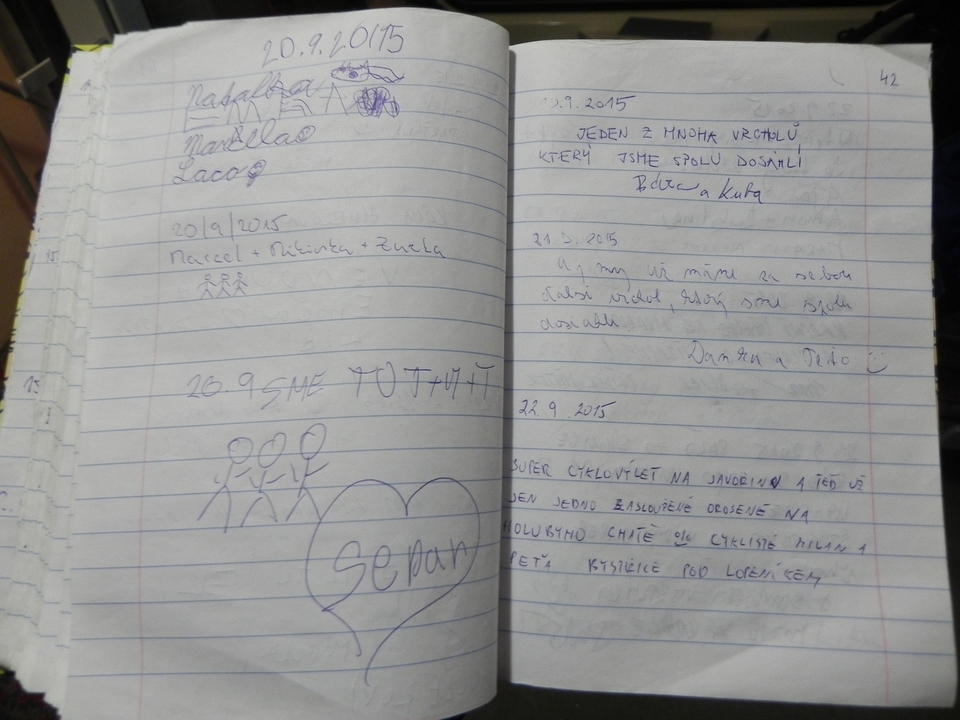 20.9.2015
Natalka
Marcela
Laco
20/9/2015
Marcel + Mikinka + Zuzka
20.9 SME TU T+M+T
Sepan
42
.9.2015
JEDEN Z MNOHA VRCHOLŮ,
KTERÝ JSME SPOLU DOSÁHLI
a Kuba
21.9.2015
Aj my už máme za sebou
ďalší vrchol, ktorý sme spolu
dosiahli
Danka a Peťo
22.9.2015
SUPER CYKLOVÝLET NA JAVOŘINU A TEĎ UŽ
JEN JEDNO ZASLOUŽENÉ OROSENÉ NA
HOLUBYHO CHATĚ CYKLISTÉ MILAN A
PEŤA BYSTŘICE POD LOPENÍKEM